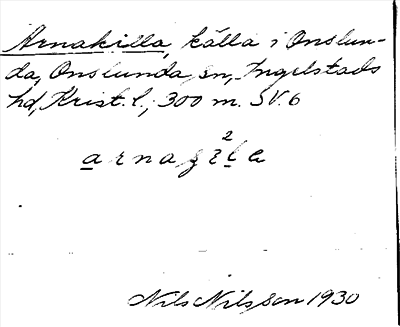 Arnakilla, källa i Onslun-
da, Onslunda sn, Ingelstads
hd, Krist. l., 300 m. SV. 6
Nils Nilsson 1930